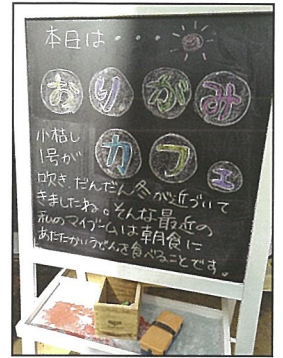 本日は・・・・
おりがみ
カフェ
小枯し
1号が
吹き、だんだん冬が近づいて
きましたね。そんな最近の
私のマイブームは朝食に
あたたかいうどんを食べることです。